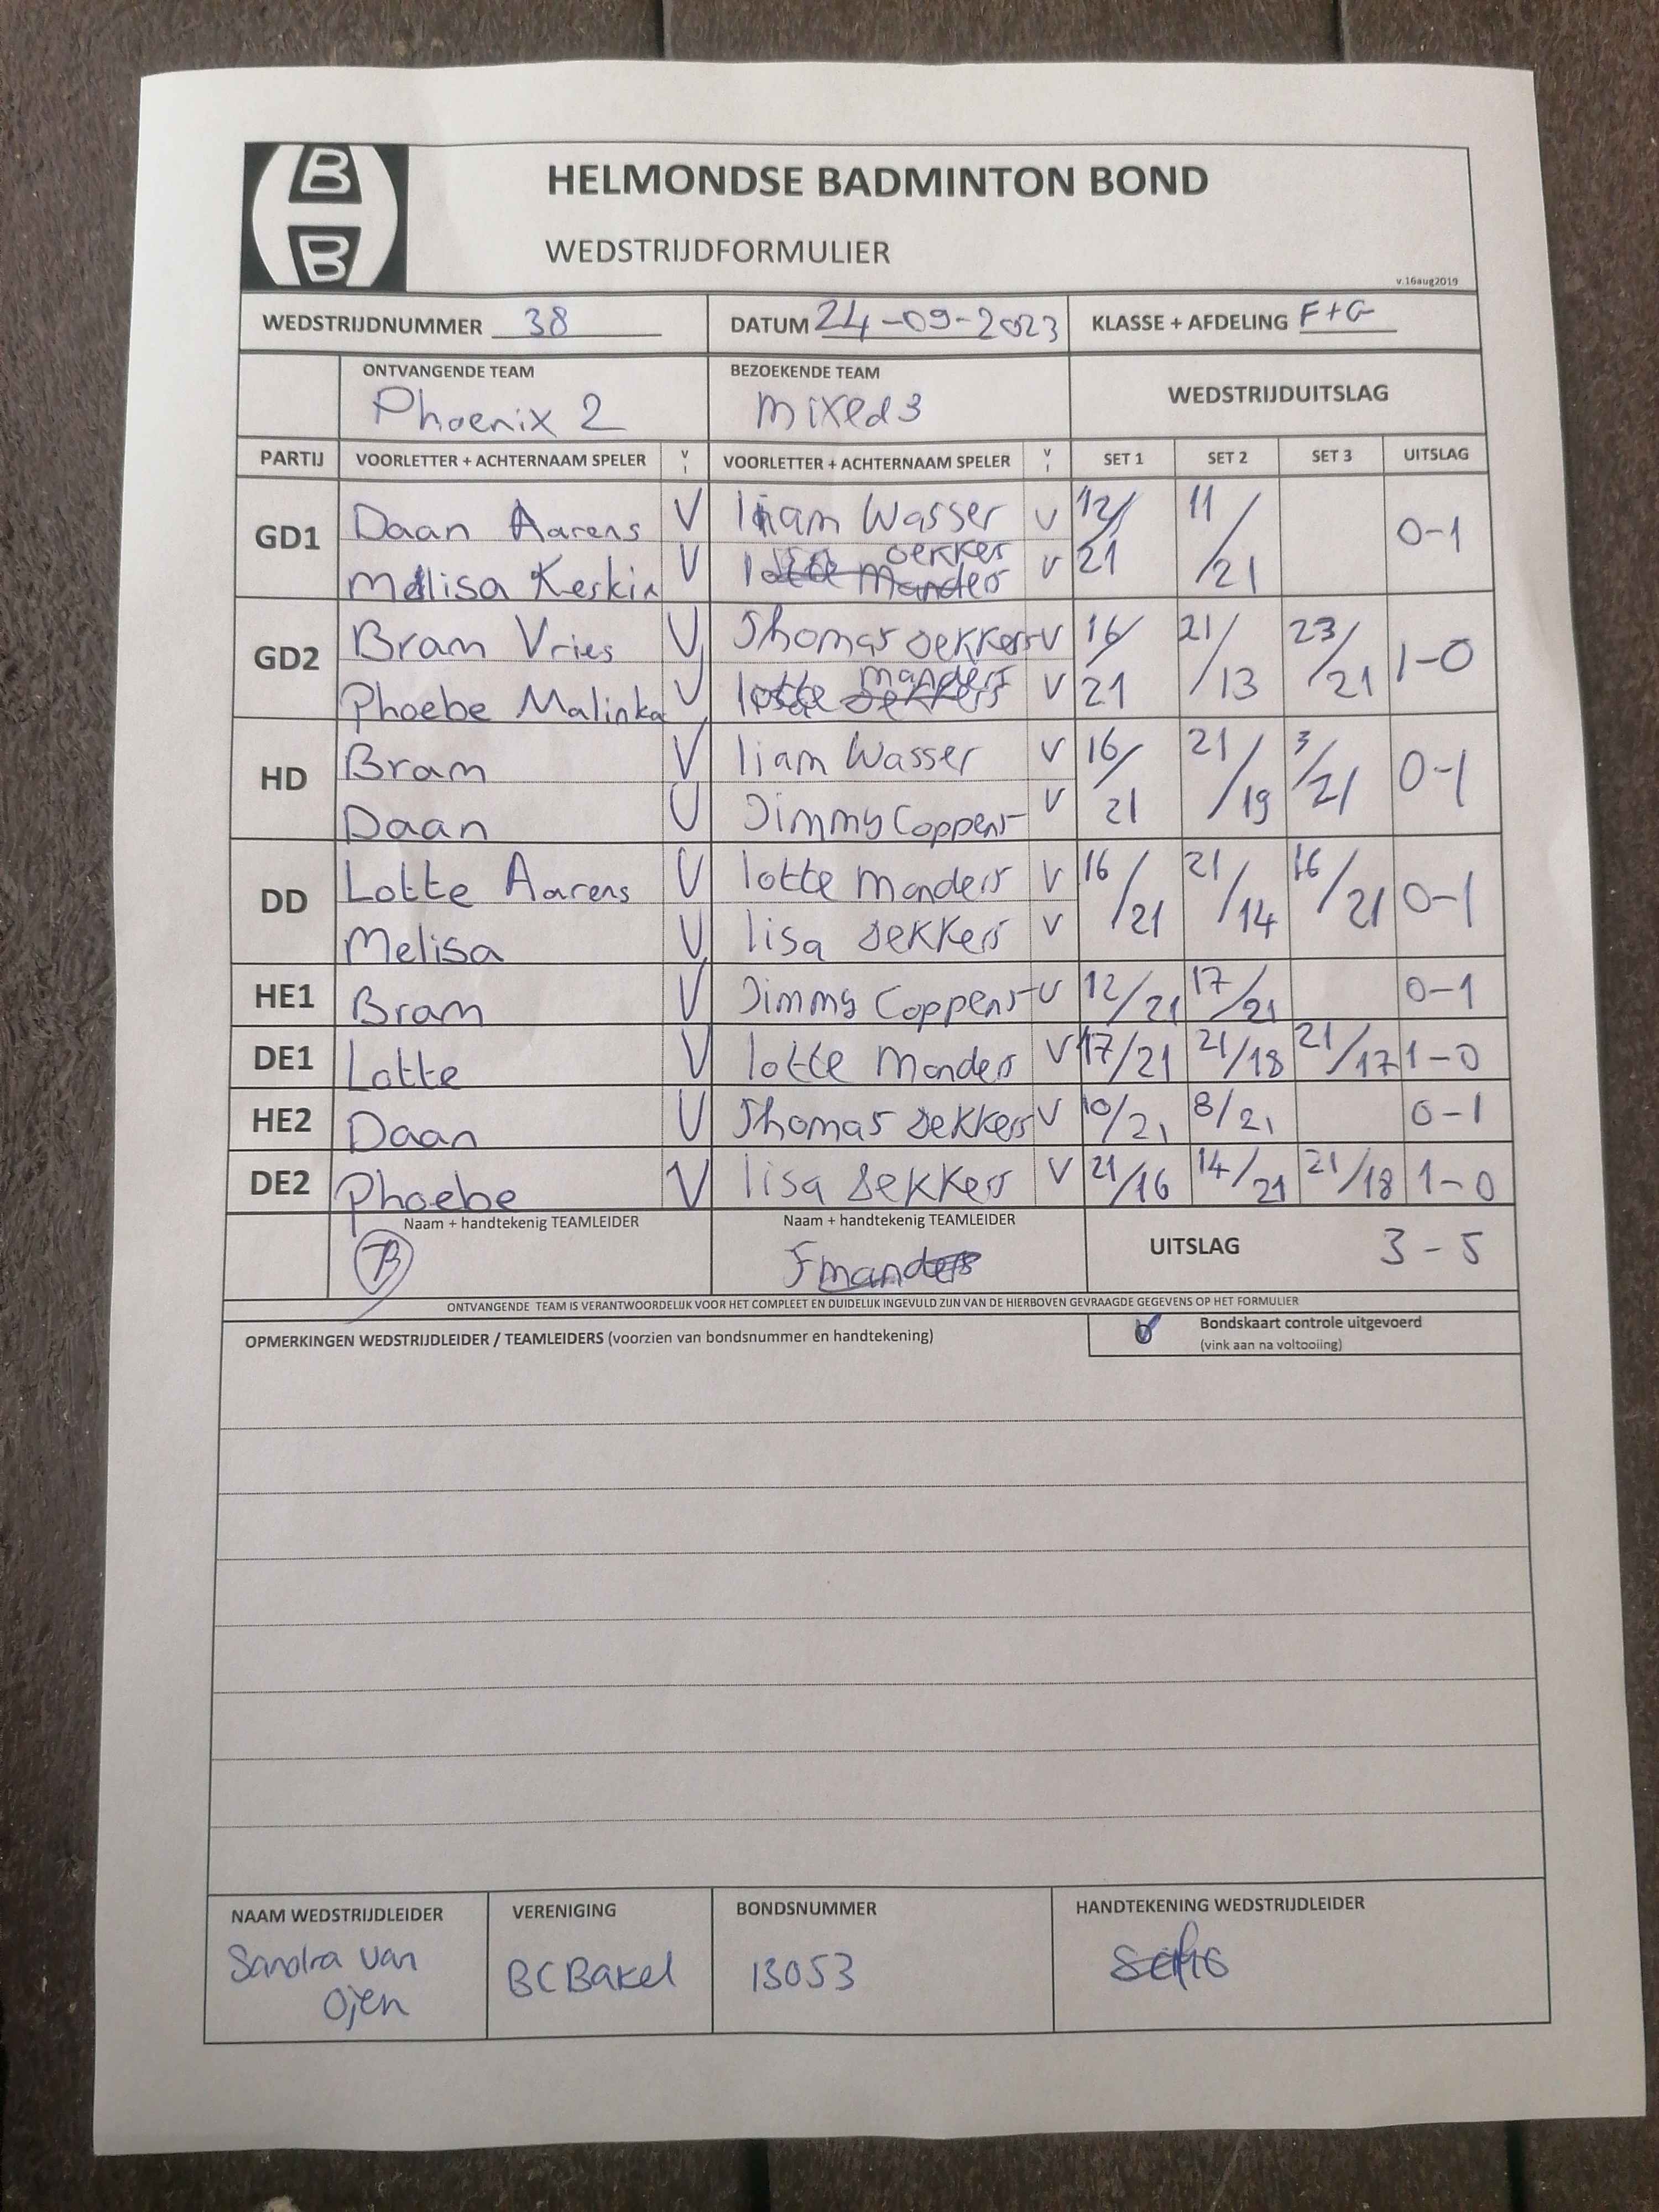 B
B
HELMONDSE BADMINTON BOND
WEDSTRIJDFORMULIER
v.16aug2019
WEDSTRIJDNUMMER 38 DATUM 24-09-2023 KLASSE + AFDELING F+G
ONTVANGENDE TEAM BEZOEKENDE TEAM WEDSTRIJDUITSLAG
Phoenix 2 mixed3
PARTIJ VOORLETTER + ACHTERNAAM SPELER V VOORLETTER + ACHTERNAAM SPELER V SET 1 SET 2 SET 3 UITSLAG
GD1 Daan Aarens V liam Wasser V 12/21 11/21 0-1
Melisa Keskin V dekker Manders V
GD2 Bram Vries V Thomas dekkers V 16/21 21/13 23/21 1-0
Phoebe Malinka V lotte manders V
HD Bram V liam Wasser V 16/21 21/19 3/21 0-1
Daan V Jimmy Coppens V
DD Lotte Aarens V lotte manders V 16/21 21/14 16/21 0-1
Melisa V lisa dekkers V
HE1 Bram V Jimmy Coppens V 12/21 17/21 0-1
DE1 Lotte V lotte Manders V 17/21 21/18 21/17 1-0
HE2 Daan V Thomas dekkers V 10/21 8/21 0-1
DE2 Phoebe V lisa dekkers V 21/16 14/21 21/18 1-0
Naam + handtekenig TEAMLEIDER Naam + handtekenig TEAMLEIDER UITSLAG 3-5
Fmanders
ONTVANGENDE TEAM IS VERANTWOORDELIJK VOOR HET COMPLEET EN DUIDELIJK INGEVULD ZIJN VAN DE HIERBOVEN GEVRAAGDE GEGEVENS OP HET FORMULIER
OPMERKINGEN WEDSTRIJDLEIDER / TEAMLEIDERS (voorzien van bondsnummer en handtekening)
Bondskaart controle uitgevoerd
(vink aan na voltooiing)
NAAM WEDSTRIJDLEIDER VERENIGING BONDSNUMMER HANDTEKENING WEDSTRIJDLEIDER
Sandra van Ojen BC Bakel 13053